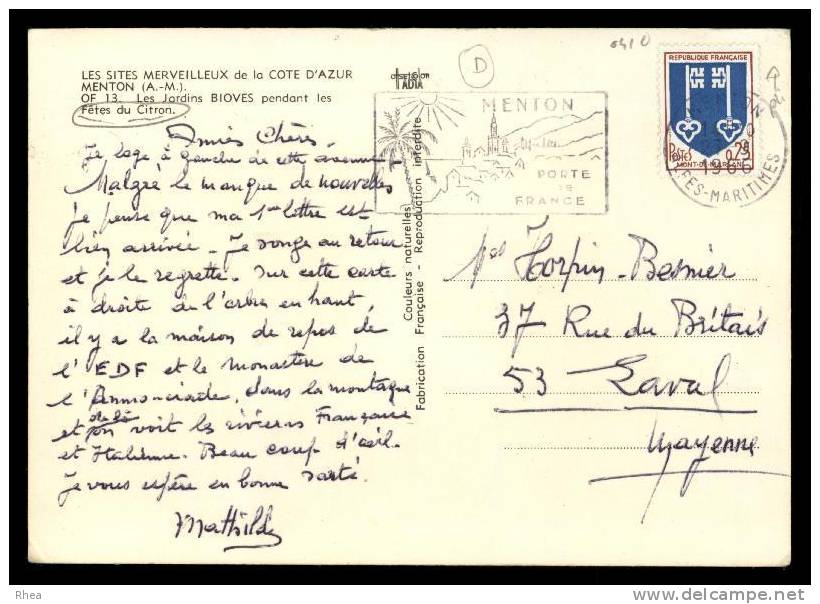 LES SITES MERVEILLEUX de la COTE D'AZUR
MENTON (A.-M.).
OF 13. Les Jardins BIOVES pendant les
Fêtes du Citron.
Amies Chères.
Je loge à gauche de cette avenue.
Malgré le manque de nouvelles
je pense que ma 1ère lettre est
bien arrivée. Je songe au retour
et je le regrette. Sur cette carte
à droite de l'arbre en haut,
il y a la maison de repos de
l'EDF et le monastère de
l'Annonciade, dans la montagne
et de là on voit les rivieras Française
et Italienne. Beau coup d'œil.
Je vous espère en bonne santé.
Mathilde
Couleurs naturelles
Fabrication Française - Reproduction interdite
D
MENTON
PORTE
DE
FRANCE
REPUBLIQUE FRANÇAISE
POSTES 0,25
MONT-DE-MARSAN
1966
ALPES-MARITIMES
Horpin-Besnier
37 Rue du Britais
53 Laval
Mayenne
Rhea
delcampe.net